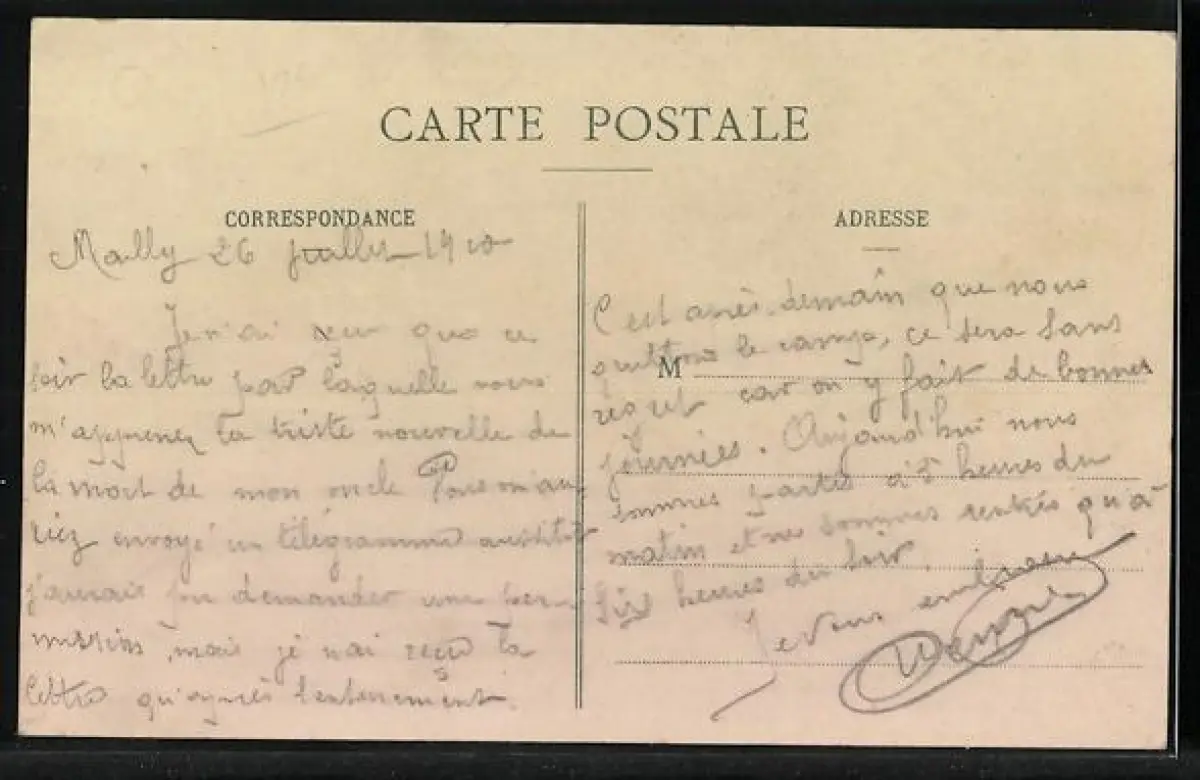 CARTE POSTALE
CORRESPONDANCE
Mailly 26 juillet 1910
Je n'ai reçu que ce
soir la lettre par laquelle vous
m'apprenez la triste nouvelle de
la mort de mon oncle
riez envoyé un télégramme aussitôt
j'aurais pu demander une per-
mission, mais je n'ai reçu ta
lettre qu'après l'enterrement.
ADRESSE
C'est après-demain que nous
quittons le camp, ce sera sans
M
regret car on y fait de bonnes
journées. Aujourd'hui nous
sommes partis à 5 heures du
matin et ne sommes rentrés qu'à
six heures du soir.
Je vous embrasse